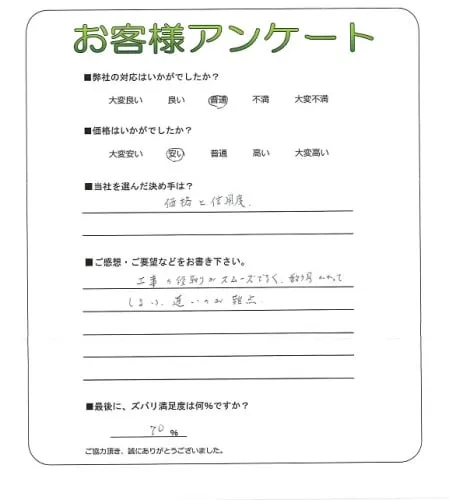 お客様アンケート
■弊社の対応はいかがでしたか？
大変良い 良い 普通 不満 大変不満
■価格はいかがでしたか？
大変安い 安い 普通 高い 大変高い
■当社を選んだ決め手は？
価格と信用度.
■ご感想・ご要望などをお書き下さい。
工事の段取りがスムーズでなく、
しまい、遅いのが難点.
■最後に、ズバリ満足度は何%ですか？
70 %
ご協力頂き、誠にありがとうございました。